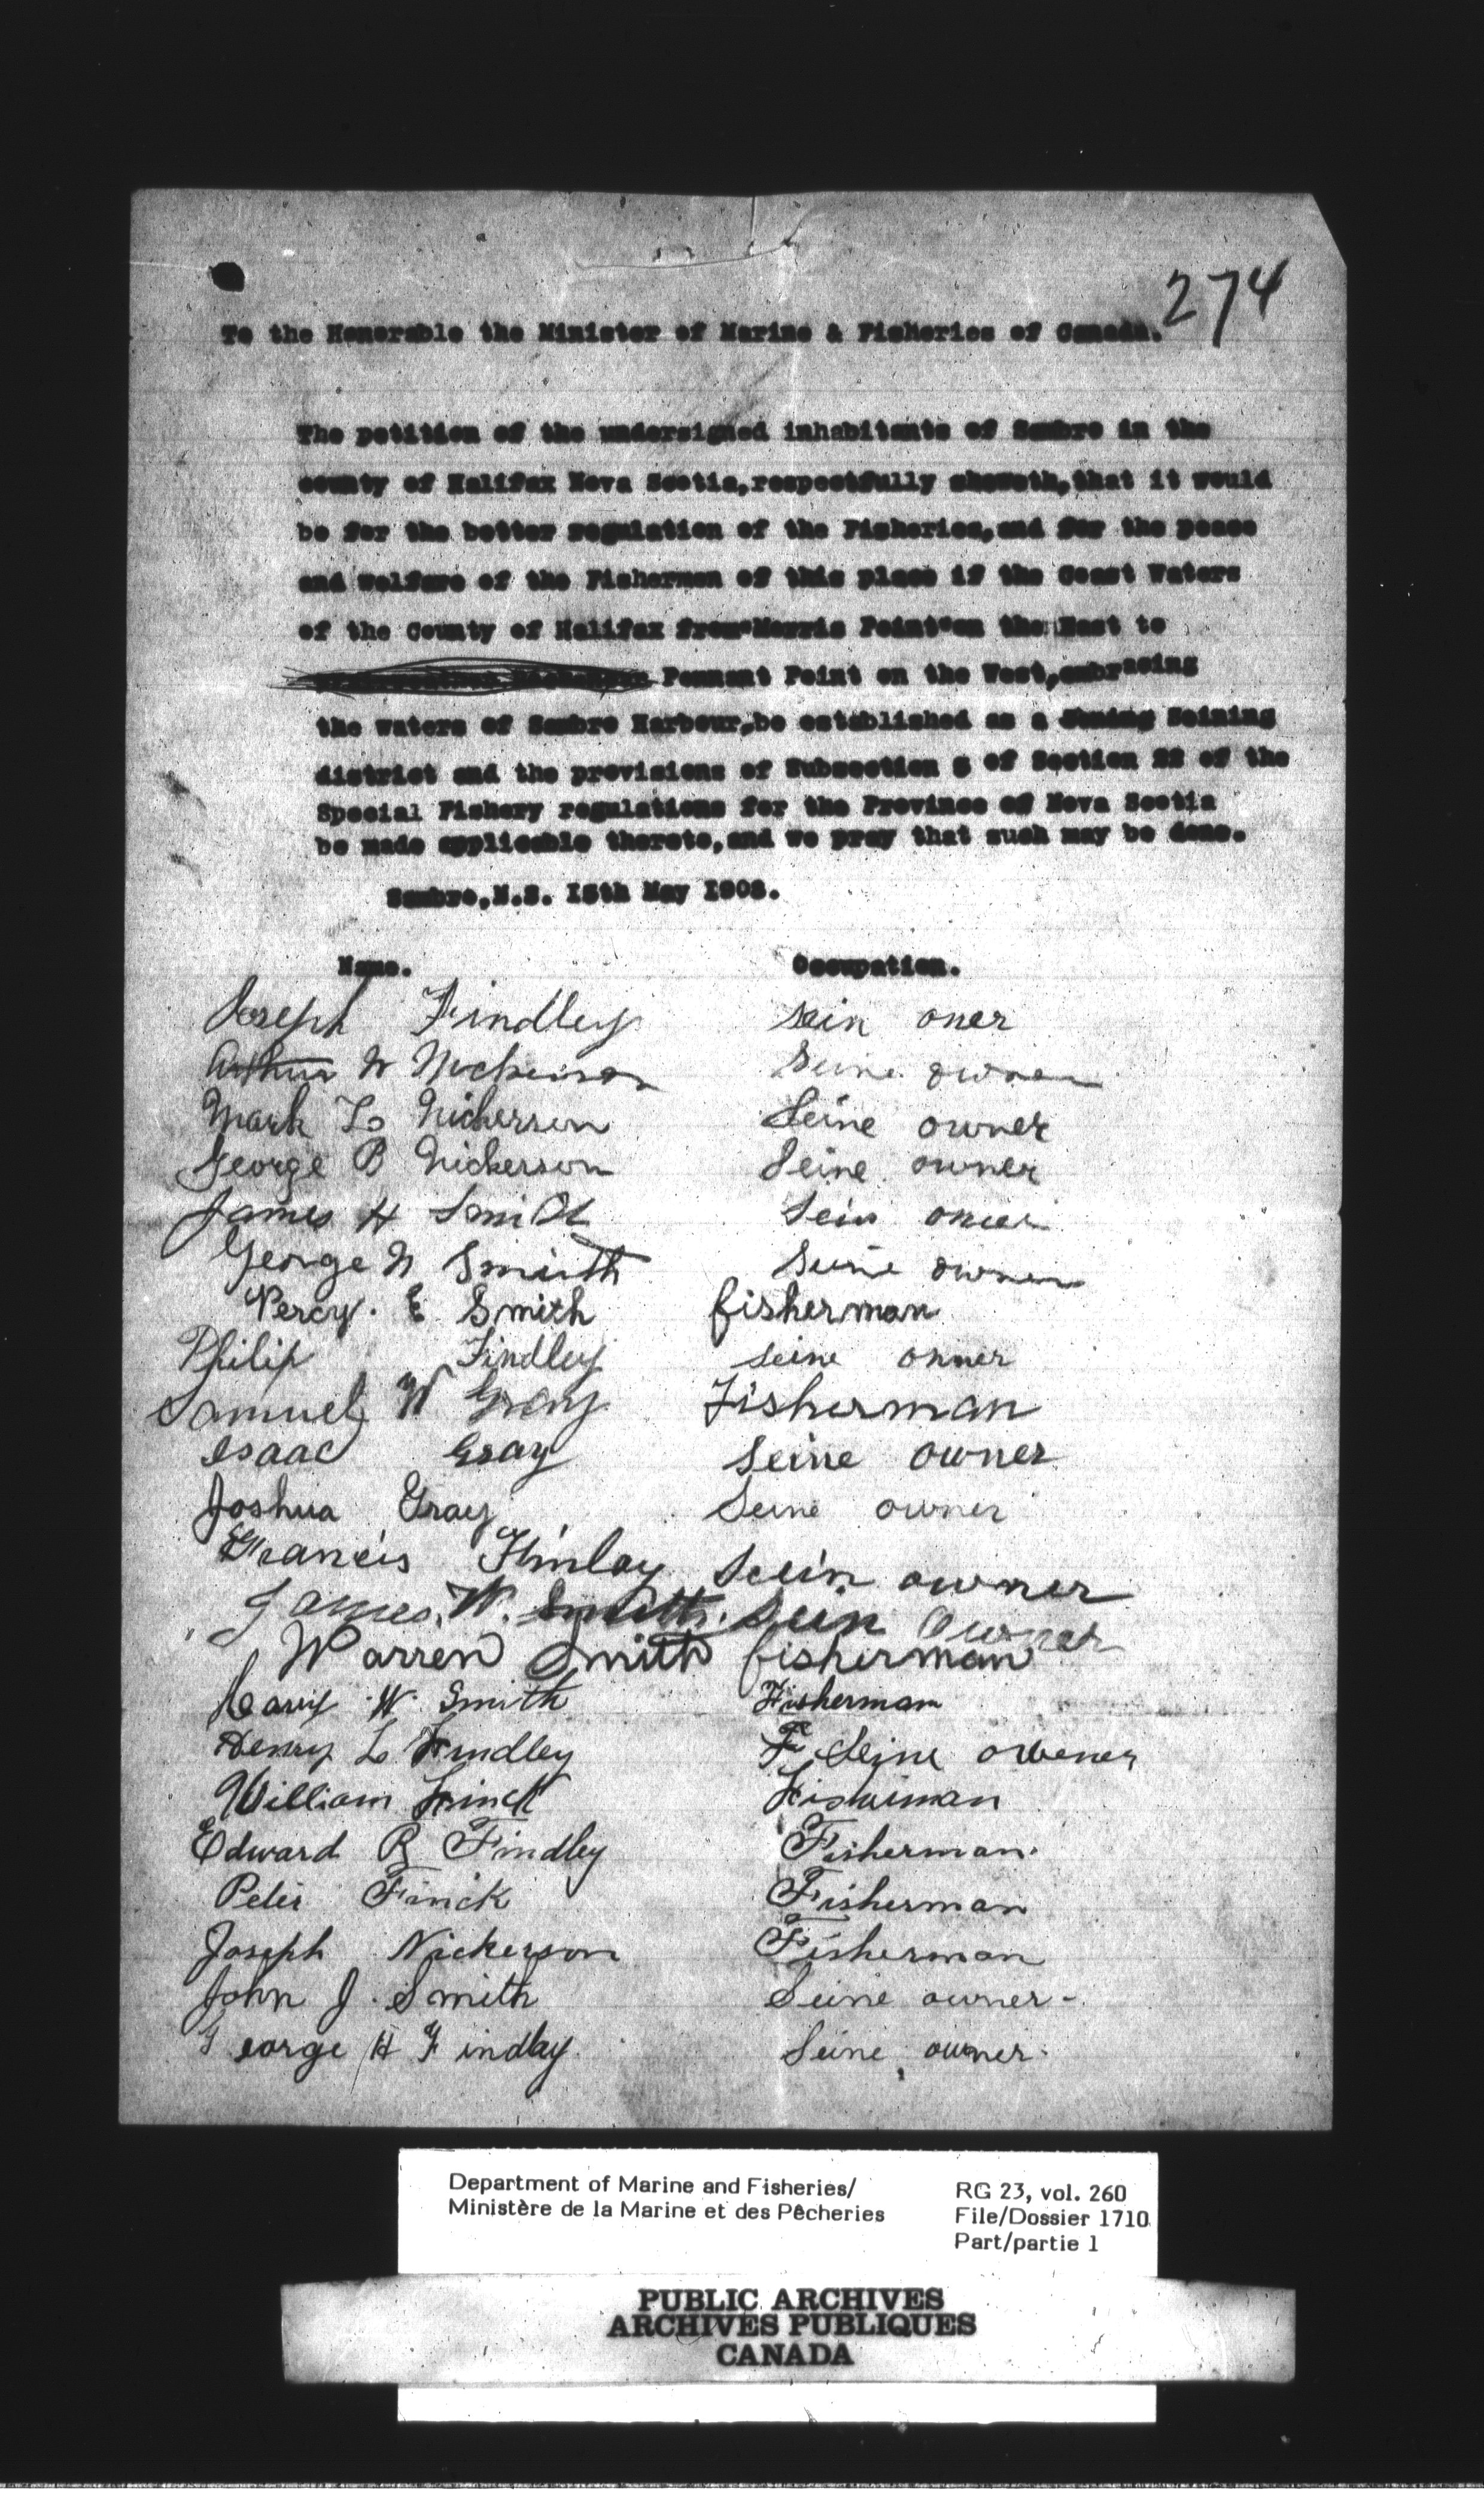 274
To the Honorable the Minister of Marine & Fisheries of Canada.
The petition of the undersigned inhabitants of Sambro in the
county of Halifax Nova Scotia,respectfully sheweth,that it would
be for the better regulation of the Fisheries,and for the peace
and welfare of the Fishermen of this place if the Coast Waters
of the County of Halifax from"Morris Point"on the East to
Pennant Point on the West,embracing
the waters of Sambro Harbour,be established as a Seining
district and the provisions of Subsection of Section 22 of the
Special Fishery regulations for the Province of Nova Scotia
be made applicable thereto,and we pray that such may be done.
Sambro,N.S. 15th May 1908.
Name. Occupation.
Joseph Findley sein oner
Arthur W Nickerson Seine owner
Mark L Nickerson Seine owner
George B Nickerson Seine owner
James H Smith Sein
George N Smith Seine owner
Percy. E Smith fisherman
Philip Findley seine onner
Samuel W Gray Fisherman
Isaac Gray Seine owner
Joshua Gray Seine owner
Francis Finlay Sein owner
James. W. Smith. Sein Owner
Warren Smith fisherman
Harry W. Smith Fisherman
Henry L Findley F Seine owener
William Finck Fisherman
Edward R Findley Fisherman.
Peter Finck Fisherman
Joseph Nickerson Fisherman
John J. Smith Seine owner-
George H Findlay. Seine owner.
Department of Marine and Fisheries/ RG 23, vol. 260
Ministère de la Marine et des Pêcheries File/Dossier 1710
Part/partie 1
PUBLIC ARCHIVES
ARCHIVES PUBLIQUES
CANADA